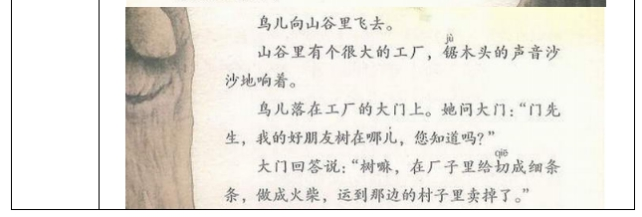 鸟儿向山谷里飞去。
jù
山谷里有个很大的工厂，锯木头的声音沙
沙地响着。
鸟儿落在工厂的大门上。她问大门：“门先
生，我的好朋友树在哪儿，您知道吗？”
qiē
大门回答说：“树嘛，在厂子里给切成细条
条，做成火柴，运到那边的村子里卖掉了。”